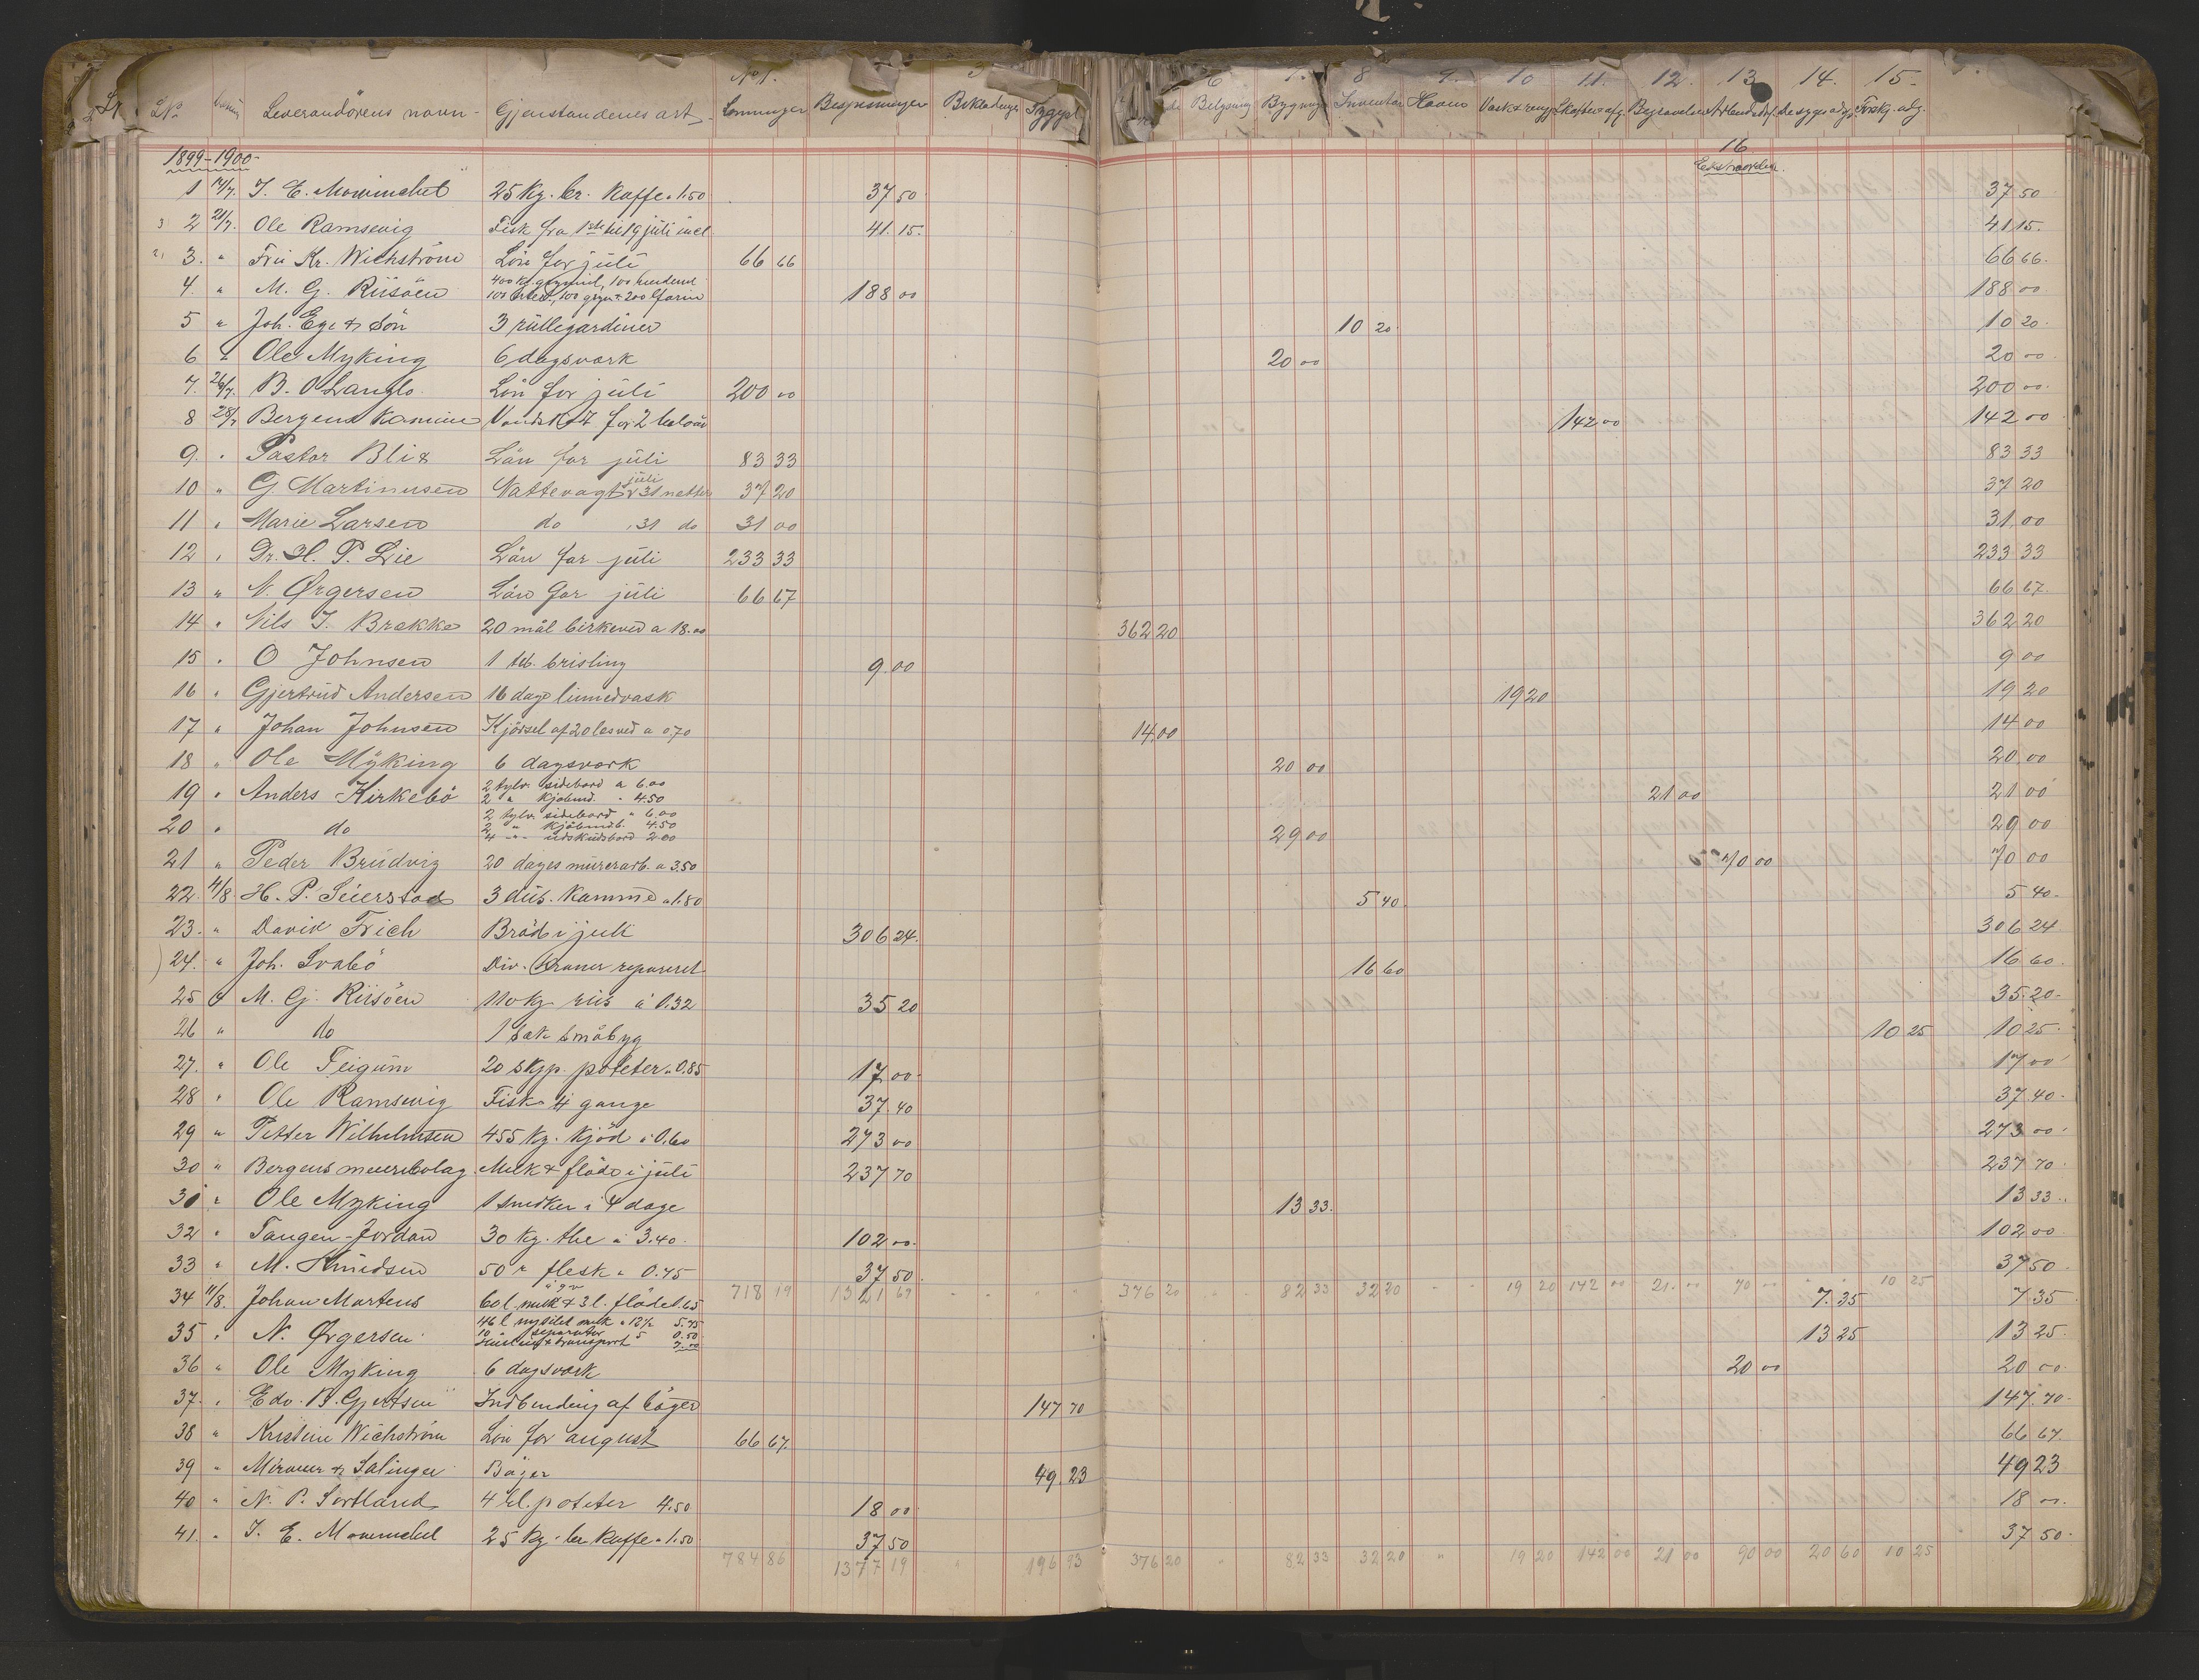 No 1. 3 6 7. 8 9. 10 11. 12. 13 14. 15.
LNo Leverandörens navn Gjenstandenes art Lønninger Bespisninger Beklædninger Belysning Bygninger Inventar Haven Vask & rengj. Skatter & afg. Begravelser Forskj. udg.
1899-1900 16 Extraordin.
1 14/7. J. E. Mowinckel 25 kg. br. kaffe a 1.50 37 50 37 50
2 21/7. Ole Ramsevig Fisk fra 1ste til 19 juli incl. 41.15. 41 15.
3. " Frü Kr. Wichström Lön for juli 66 66 66 66.
4. " M. G. Riisöen 188 00 188 00
5 " Joh. Ege & Sön 3 rüllegardiner 10 20 10 20
6 " Ole Myking 6 dagsverk 20 00 20 00
7. 26/7. B. O Langlo Lön for juli 200 00 200 00
8 28/7 Bergens kommune 142 00 142 00
9. " Pastor Blix Lön for juli 83 33 83 33
10 " G. Martinusen Nattevagt i juli 31 netter 37 20 37 20
11 " Marie Larsen do " 31 do 31 00 31 00
12 " Dr. H. P. Lie Lön for juli 233 33 233 33
13 " N. Ørgersen Lön for juli 66 67 66 67.
14 " Nils J. Brække 20 mål birkeved a 18.00 362 20 362 20
15 " O Johnsen 1 td. brisling 9.00 9 00
16 " Gjertrüd Andersen 16 dage linnedvask 19 20 19 20
17 " Johan Johnsen Kjörsel af 20 læs ved a 0.70 14.00 14 00
18 " Ole Myking 6 dagsverk 20 00 20 00
19 " Anders Kirkebö 2 tylv. sidebord a 6.00
2 " kjöbmd. " 4.50 21 00 21 00
20 " do 2 tylv. sidebord " 6.00
2 " kjöbmdb. 4.50
4 " udskudsbord 2.00 29 00 29 00
21 " Peder Brüdvig 20 dages mürerarb. a 3.50 70 00 70 00
22. 4/8 H. P. Seierstad 3 düs. kamme a 1.80 5 40 5 40
23. " David Frich Bröd i juli 306 24. 306 24
24. " Joh. Svabö Div. kraner repareret 16 60 16 60
25 " M. G. Riisöen 110 kg riis à 0.32 35 20 35.20
26 " do 1 sæk småbyg 10 25 10 25
27. " Ole Feigüm 20 skjp. poteter a 0.85 17.00 17 00
28 " Ole Ramsevig Fisk 4 gange 37.40 37.40
29 " Petter Wilhelmsen 455 kg. kjöd à 0.60 273 00 273 00
30 " Bergens meieribolag Melk & flöde i juli 237 70 237 70
31 " Ole Myking 1 snedker i 4 dage 13 33. 13 33.
32 " Tangen-Jordan 30 kg. the à 3.40 102 00 102 00
33 " M. Knüdsen 50 " flesk " 0.75 37 50 37 50
718 19 1321 69 376 20 82 33 32 20 19 20 142 00 21 00 70 00 10 25
34 11/8. Johan Martens 60 l. melk & 3 l. flöde 1.65 7.35 7 35
35 " N. Ørgersen 46 l nysilet melk a 12½ 5.75
10 " separator 5 0.50
13 25 13 25
36 " Ole Myking 6 dagsverk 20 00 20 00
37. " Edv. B. Gjertsen Indbinding af böger 147 70 147.70
38 " Kristine Wichström Lön for august 66 67. 66 67.
39 " Böger 49.23 49 23
40 " N. P. Sortland 4 hl. poteter 4.50 18 00 18 00
41. " J. E. Mowinckel 25 kg. br kaffe a 1.50 37 50 37 50
784 86 1377 19 196 93 376 20 82 33 32 20 19 20 142 00 21 00 90 00 20 60 10 25